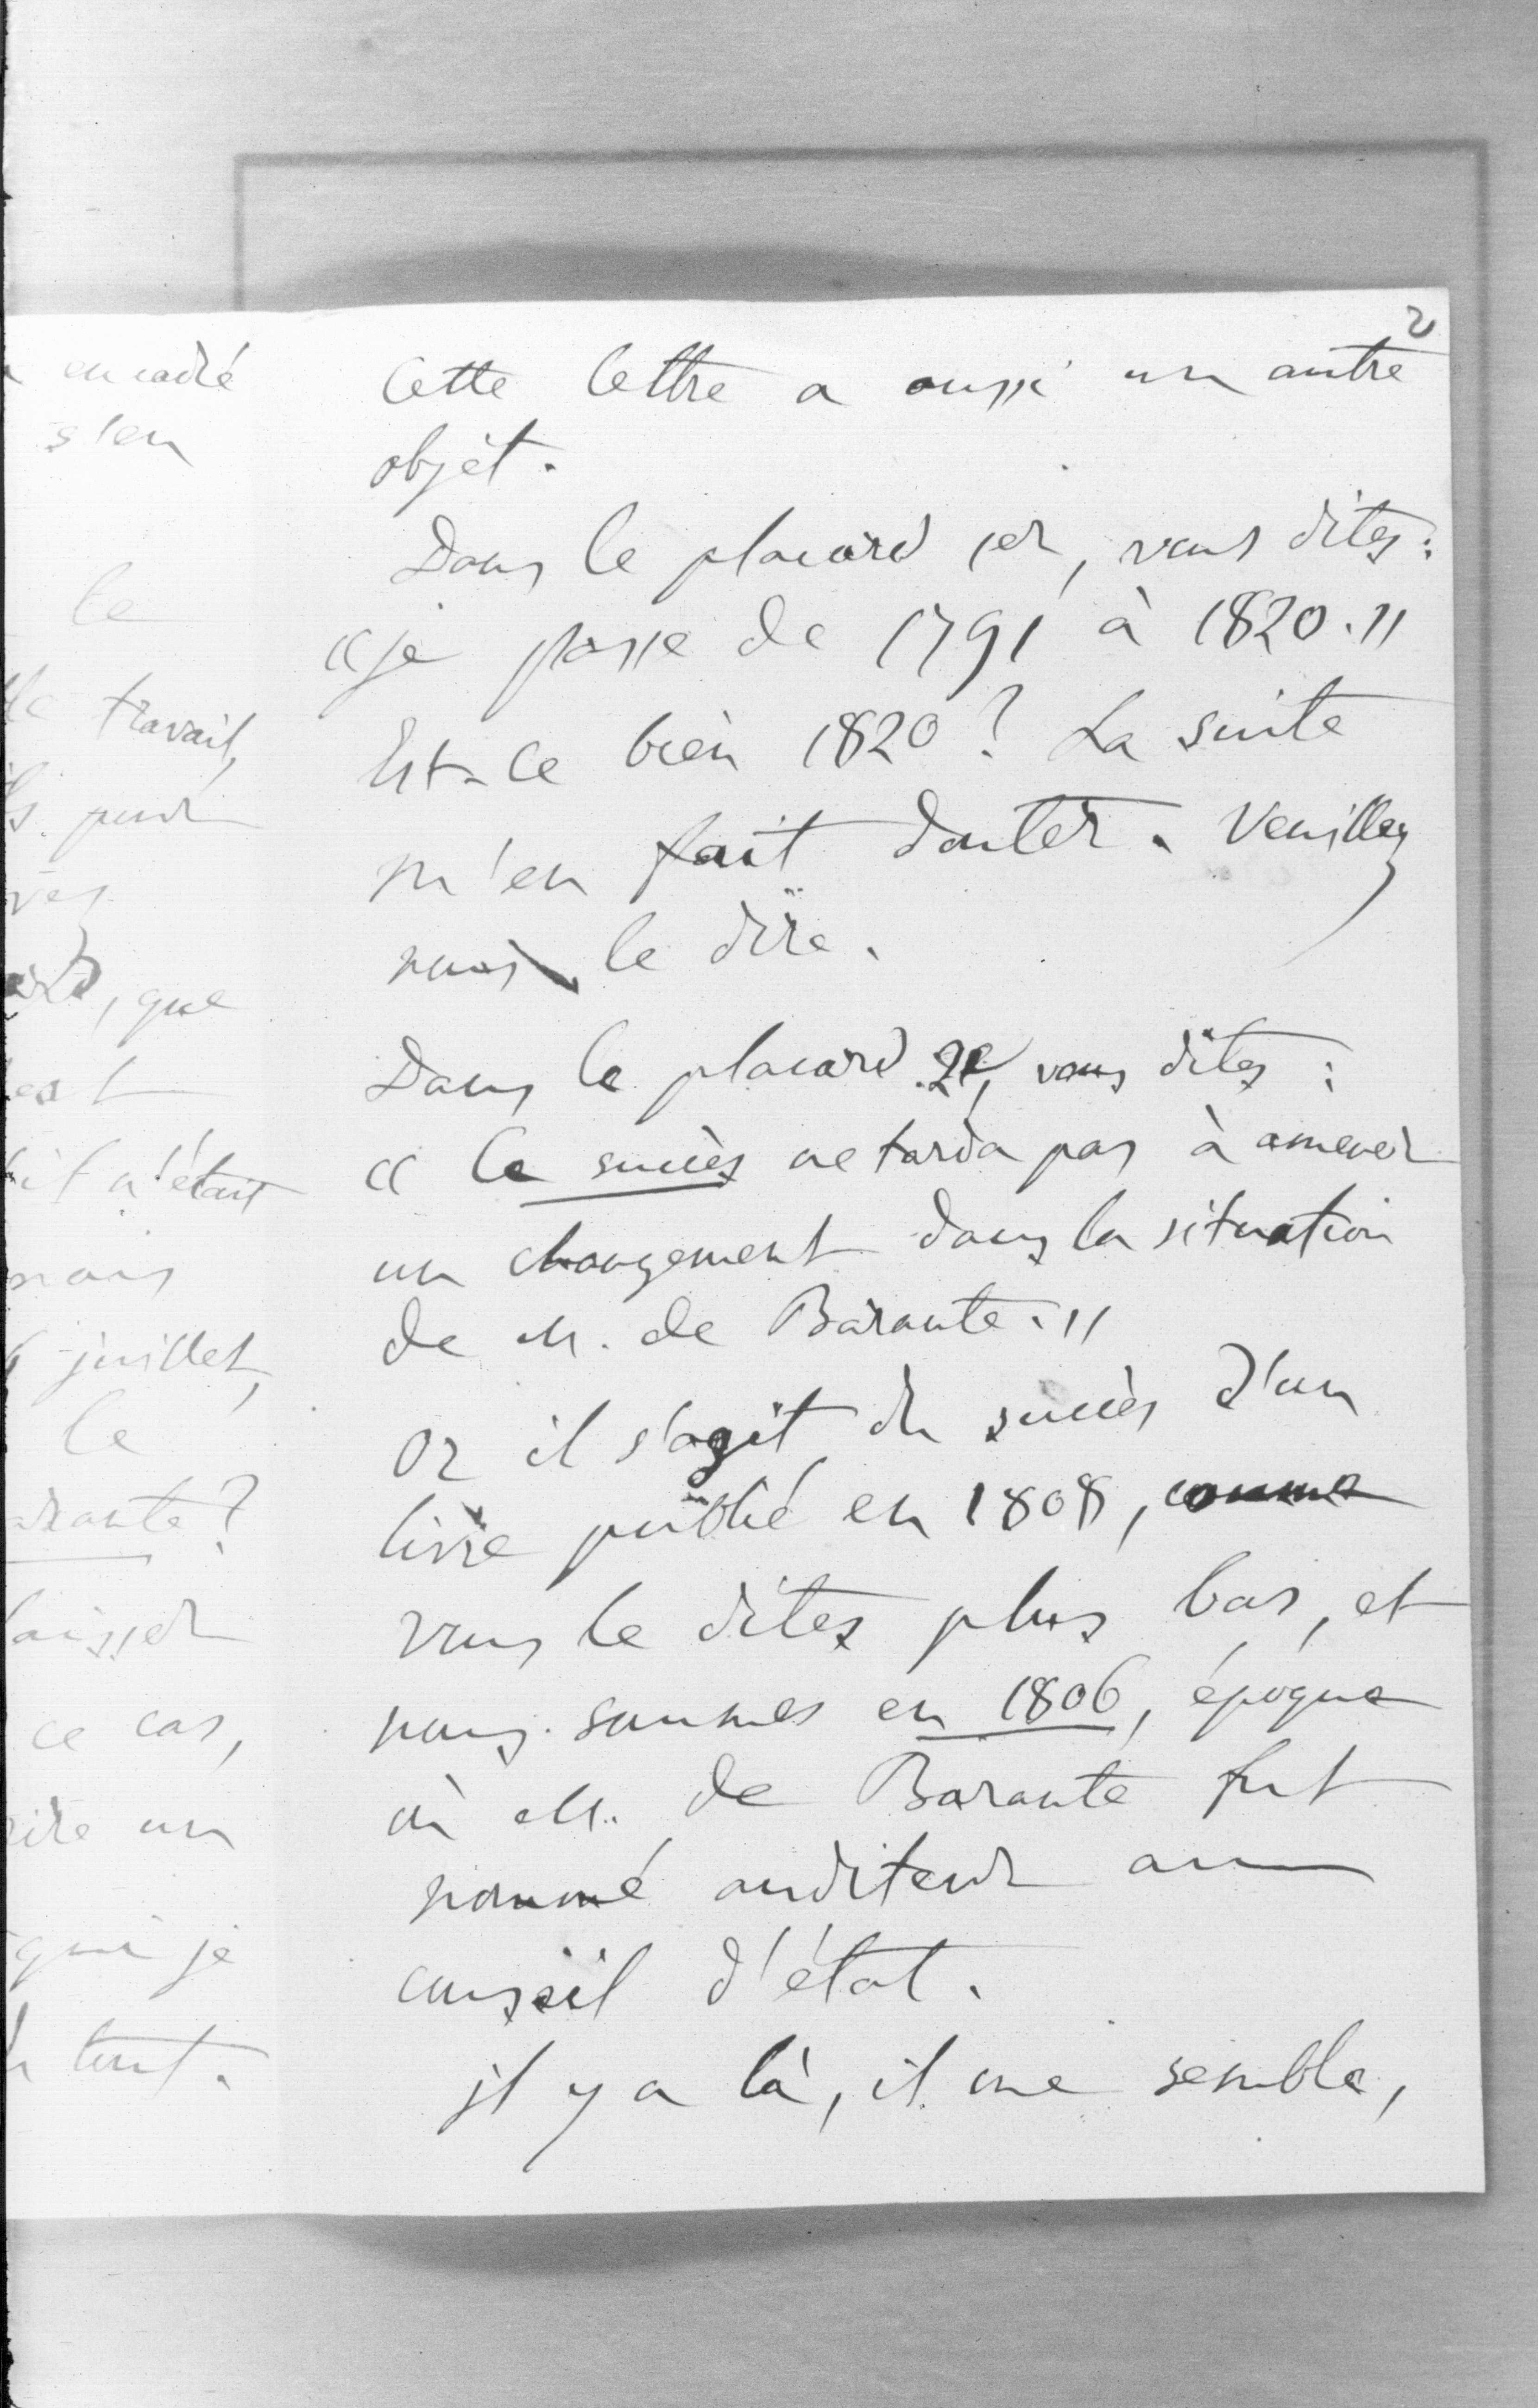 2
Cette lettre a aussi un autre
objet.
Dans le placard 1er, vous dites :
« je passe de 1791 à 1820. »
Est-ce bien 1820 ? La suite
m'en fait douter. Veuillez
nous le dire.
Dans le placard 2e, vous dites :
« Le succès ne tarda pas à amener
un changement dans la situation
de M. de Barante. »
Or il s'agit du succès d'un
livre publié en 1808, comme
vous le dites plus bas, et
nous sommes en 1806, époque
où M. de Barante fut
nommé auditeur au
conseil d'état.
Il y a là, il me semble,
encadré
s'en
le
travail,
que
n'était
mais
juillet,
le
arante ?
laisser
ce cas,
un
qui je
tout.